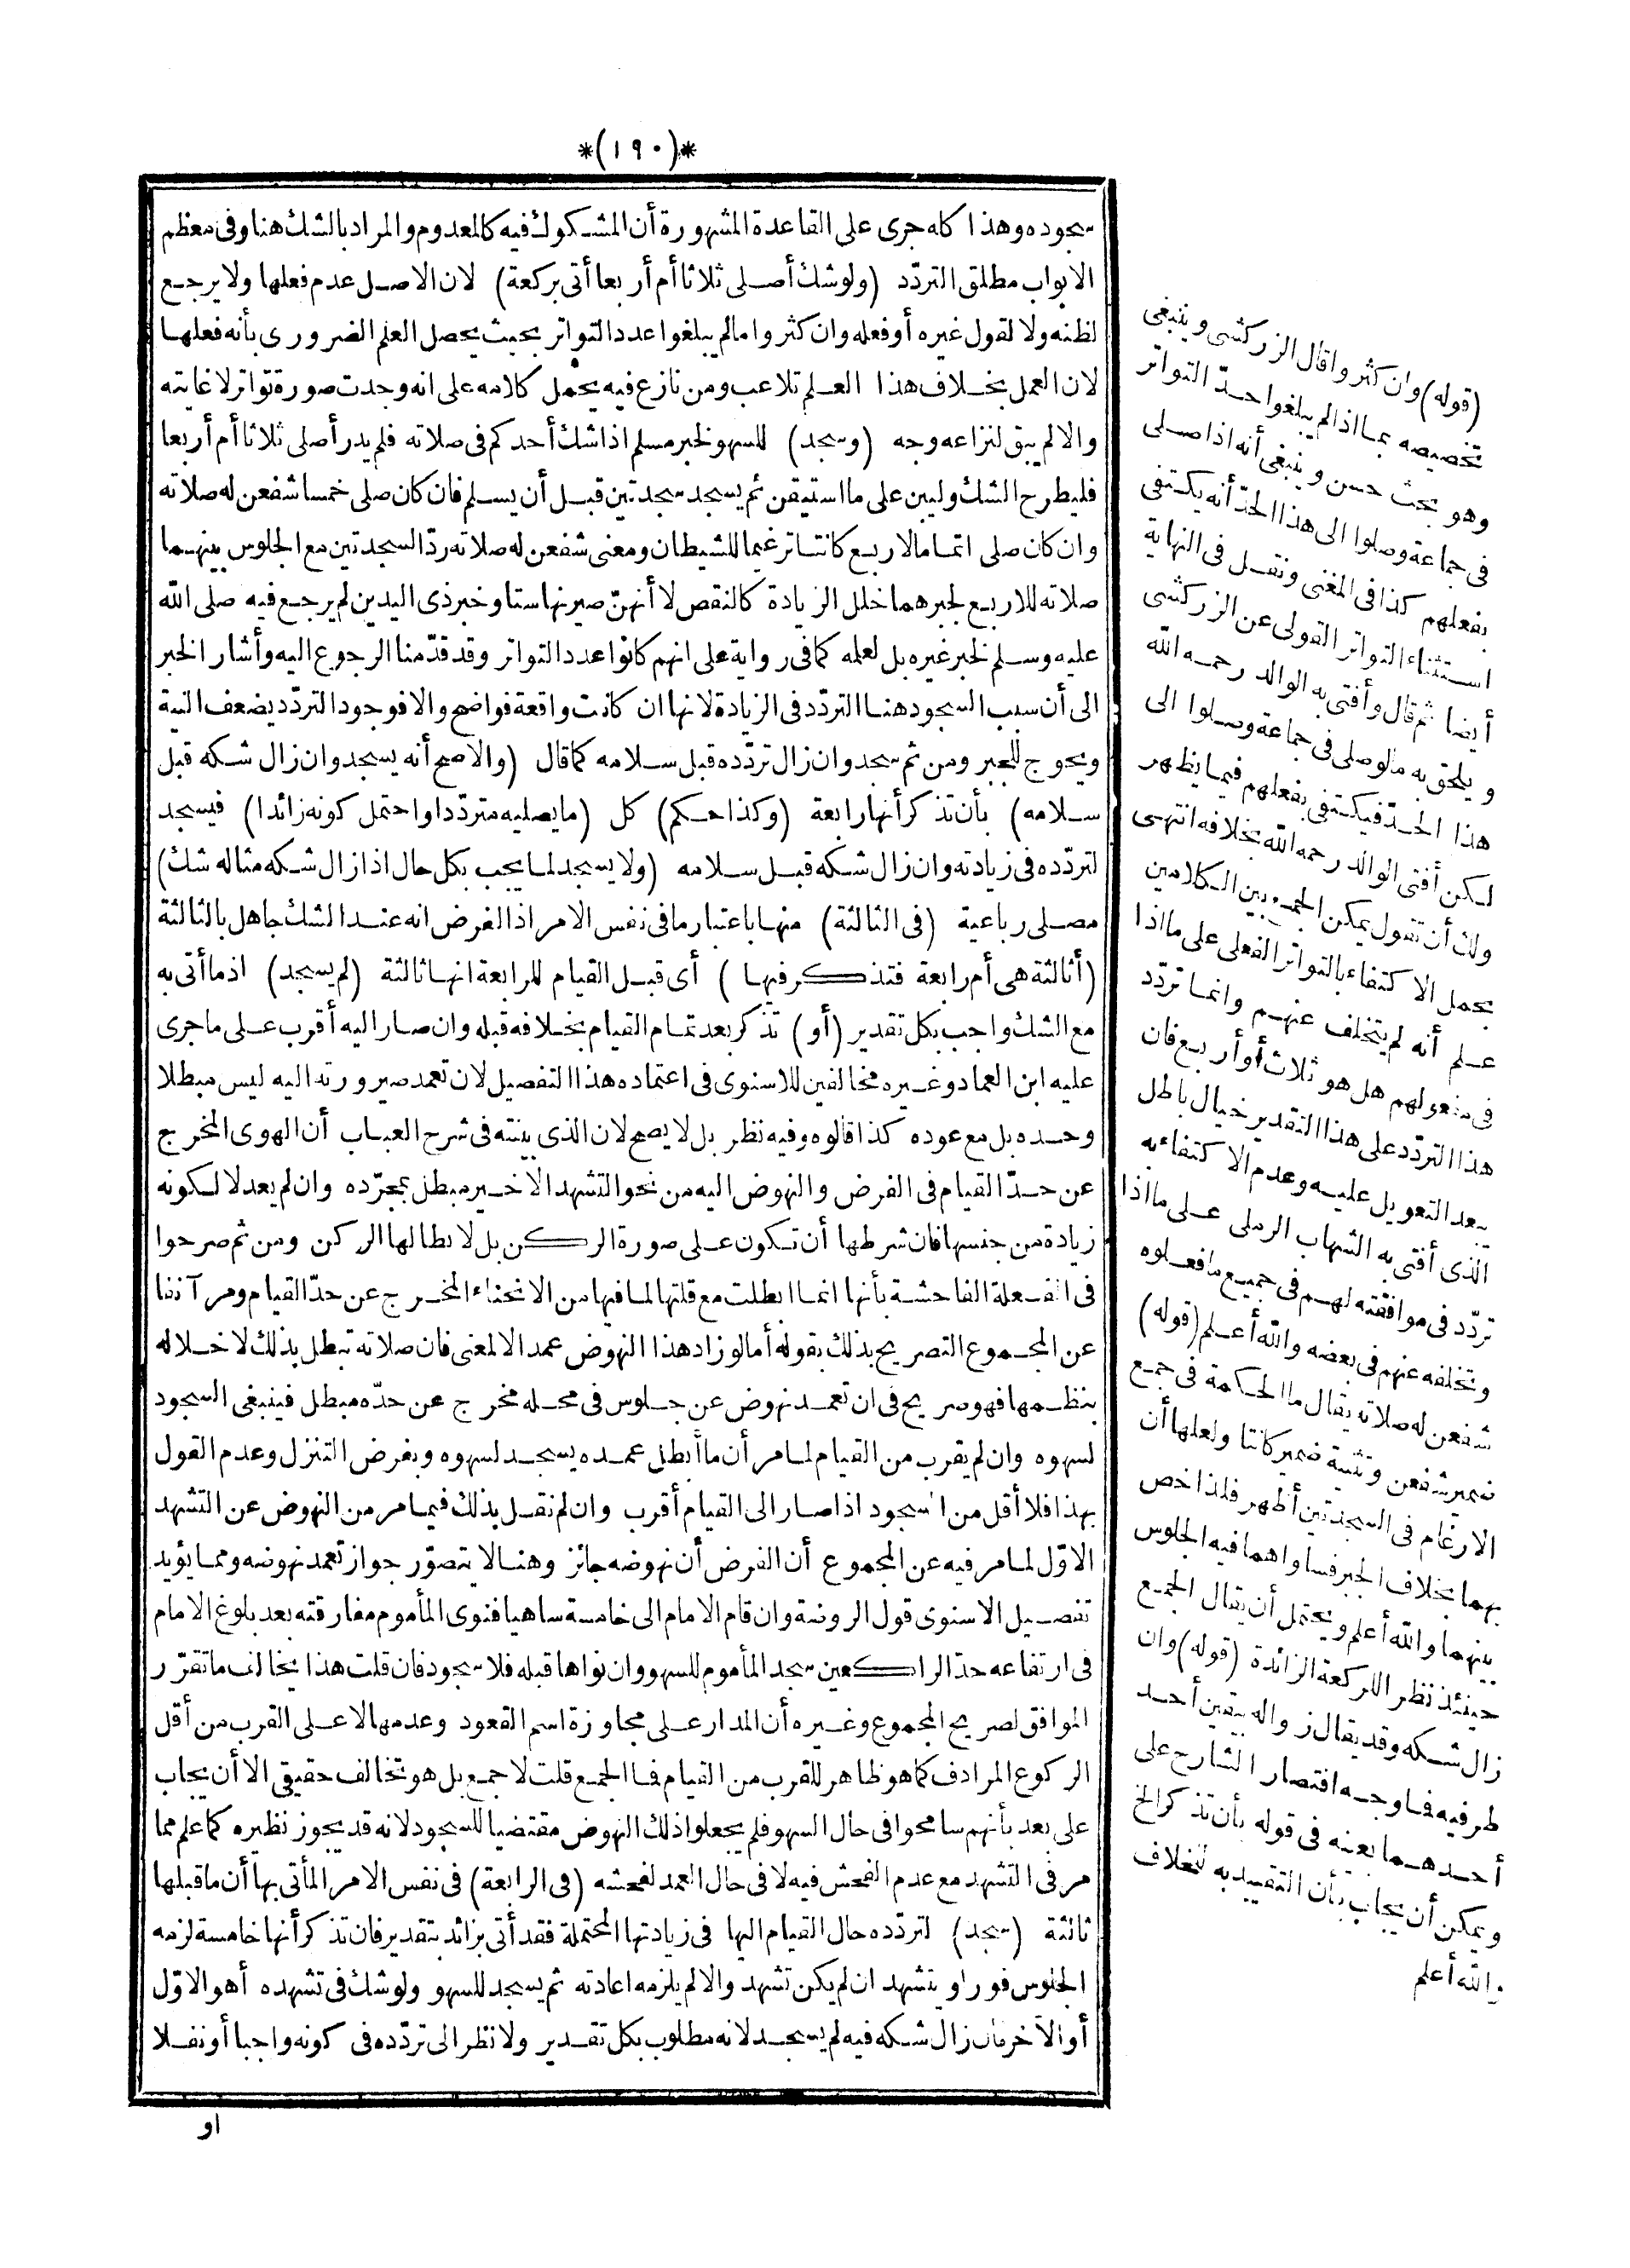 *(١٩٠)*
سجوده وهذا كله جرى على القاعدة المشهورة أن المشكوك فيه كالمعدوم والمراد بالشك هنا وفى معظم
الابواب مطلق التردّد (ولو شك أصلى ثلاثا أم أربعا أتى بركعة) لان الاصل عدم فعلها ولا يرجع
لظنه ولا لقول غيره أو فعله وان كثروا ما لم يبلغوا عدد التواتر بحيث يحصل العلم الضرورى بأنه فعلها
لان العمل بخلاف هذا العلم تلاعب ومن نازع فيه يحمل كلامه على انه وجدت صورة تواتر لا غايته
والا لم يبق لنزاعه وجه (وسجد) للسهو لخبر مسلم اذا شك أحدكم فى صلاته فلم يدر أصلى ثلاثا أم أربعا
فليطرح الشك وليبن على ما استيقن ثم يسجد سجدتين قبل أن يسلم فان كان صلى خمسا شفعن له صلاته
وان كان صلى اتماما لاربع كانتا ترغيما للشيطان ومعنى شفعن له صلاته ردّ السجدتين مع الجلوس بينهما
صلاته للاربع لجبرهما خلل الزيادة كالنقص لا أنهنّ صيرنها ستا وخبر ذى اليدين لم يرجع فيه صلى الله
عليه وسلم لخبر غيره بل لعلمه كما فى رواية على انهم كانوا عدد التواتر وقد قدّمنا الرجوع اليه وأشار الخبر
الى أن سبب السجود هنا التردّد فى الزيادة لانها ان كانت واقعة فواضح والا فوجود التردّد يضعف النية
ويحوج للجبر ومن ثم سجد وان زال تردّده قبل سلامه كما قال (والاصح أنه يسجد وان زال شكه قبل
سلامه) بأن تذكر أنها رابعة (وكذا حكم) كل (ما يصليه متردّدا واحتمل كونه زائدا) فيسجد
لتردّده فى زيادته وان زال شكه قبل سلامه (ولا يسجد لما يجب بكل حال اذا زال شكه مثاله شك)
مصلى رباعية (فى الثالثة) منها باعتبار ما فى نفس الامر اذ الفرض انه عند الشك جاهل بالثالثة
(أثالثة هى أم رابعة فتذكر فيها ) أى قبل القيام للرابعة انها ثالثة (لم يسجد) اذ ما أتى به
مع الشك واجب بكل تقدير (أو) تذكر بعد تمام القيام بخلافه قبله وان صار اليه أقرب على ما جرى
عليه ابن العماد وغيره مخالفين للاسنوى فى اعتماده هذا التفصيل لان تعمد صيرورته اليه ليس مبطلا
وحده بل مع عوده كذا قالوه وفيه نظر بل لا يصح لان الذى بينته فى شرح العباب أن الهوى المخرج
عن حدّ القيام فى الفرض والنهوض اليه من نحو التشهد الاخير مبطل بمجرّده وان لم يعد لا لكونه
زيادة من جنسها فان شرطها أن تكون على صورة الركن بل لابطالها الركن ومن ثم صرحوا
فى الفعلة الفاحشة بأنها انما ابطلت مع قلتها لما فيها من الانحناء المخرج عن حدّ القيام ومر آنفا
عن المجموع التصريح بذلك بقوله أما لو زاد هذا النهوض عمدا لا لمعنى فان صلاته تبطل بذلك لاخلاله
بنظمها فهو صريح فى ان تعمد نهوض عن جلوس فى محله مخرج عن حدّه مبطل فينبغى السجود
لسهوه وان لم يقرب من القيام لما مر أن ما أبطل عمده يسجد لسهوه وبفرض التنزل وعدم القول
بهذا فلا أقل من السجود اذا صار الى القيام أقرب وان لم نقل بذلك فيما مر من النهوض عن التشهد
الاوّل لما مر فيه عن المجموع أن الفرض أن نهوضه جائز وهنا لا يتصوّر جواز تعمد نهوضه ومما يؤيد
تفصيل الاسنوى قول الروضة وان قام الامام الى خامسة ساهيا فنوى المأموم مفارقته بعد بلوغ الامام
فى ارتفاعه حدّ الراكعين سجد المأموم للسهو وان نواها قبله فلا سجود فان قلت هذا يخالف ما تقرّر
الموافق لصريح المجموع وغيره أن المدار على مجاوزة اسم القعود وعدمها لا على القرب من أقل
الركوع المرادف كما هو ظاهر للقرب من القيام فما الجمع قلت لا جمع بل هو تخالف حقيقى الا أن يجاب
على بعد بأنهم سامحوا فى حال السهو فلم يجعلوا ذلك النهوض مقتضيا للسجود لانه قد يجوز نظيره كما علم مما
مر فى التشهد مع عدم الفحش فيه لا فى حال العمد لفحشه (فى الرابعة) فى نفس الامر المأتى بها أن ما قبلها
ثالثة (سجد) لتردّده حال القيام اليها فى زيادتها المحتملة فقد أتى بزائد بتقدير فان تذكر أنها خامسة لزمه
الجلوس فورا ويتشهد ان لم يكن تشهد والا لم يلزمه اعادته ثم يسجد للسهو ولو شك فى تشهده أهو الاوّل
أو الآخر فان زال شكه فيه لم يسجد لانه مطلوب بكل تقدير ولا نظر الى تردّده فى كونه واجبا أو نفلا
او
(قوله) وان كثروا قال الزركشى وينبغى
تخصيصه بما اذا لم يبلغوا حدّ التواتر
وهو بحث حسن وينبغى أنه اذا صلى
فى جماعة وصلوا الى هذا الحدّ أنه يكتفى
بفعلهم كذا فى المغنى ونقل فى النهاية
استثناء التواتر القولى عن الزركشى
أيضا ثم قال وأفتى به الوالد رحمه الله
ويلحق به ما لو صلى فى جماعة وصلوا الى
هذا الحدّ فيكتفى بفعلهم فيما يظهر
لكن أفتى الوالد رحمه الله بخلافه انتهى
ولك أن تقول يمكن الجمع بين الكلامين
بحمل الاكتفاء بالتواتر الفعلى على ما اذا
علم أنه لم يتخلف عنهم وانما تردّد
فى مفعولهم هل هو ثلاث أو أربع فان
هذا التردّد على هذا التقدير خيال باطل
يبعد التعويل عليه وعدم الاكتفاء به
الذى أفتى به الشهاب الرملى على ما اذا
تردّد فى موافقته لهم فى جميع ما فعلوه
وتخلفه عنهم فى بعضه والله أعلم (قوله)
شفعن له صلاته يقال ما الحكمة فى جمع
ضمير شفعن وتثنية ضمير كانتا ولعلها أن
الارغام فى السجدتين أظهر فلذا خص
بهما بخلاف الجبر فساواهما فيه الجلوس
بينهما والله أعلم ويحتمل أن يقال الجمع
حينئذ نظر اللركعة الزائدة (قوله) وان
زال شكه وقد يقال زواله بيقين أحد
طرفيه فما وجه اقتصار الشارح على
أحدهما بعينه فى قوله بأن تذكر الخ
ويمكن أن يجاب بأن التقييد به للخلاف
والله أعلم